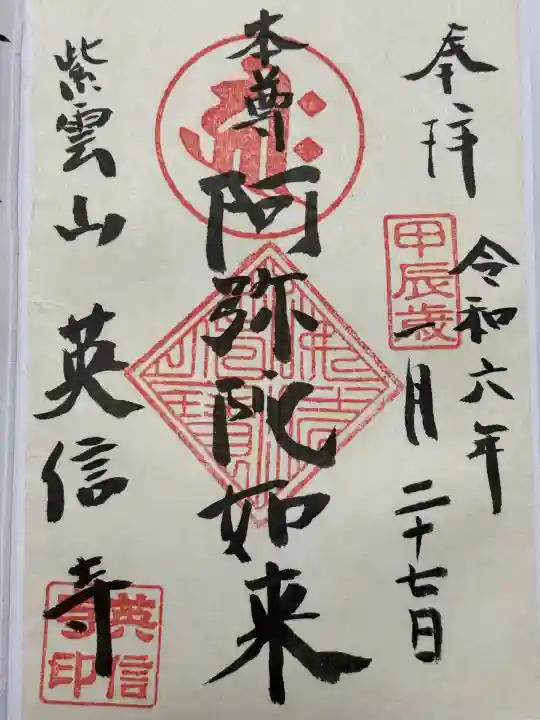 奉拝
令和六年
甲辰歳
一月二十七日
本尊 阿弥陀如来
紫雲山 英信寺
英信
寺印